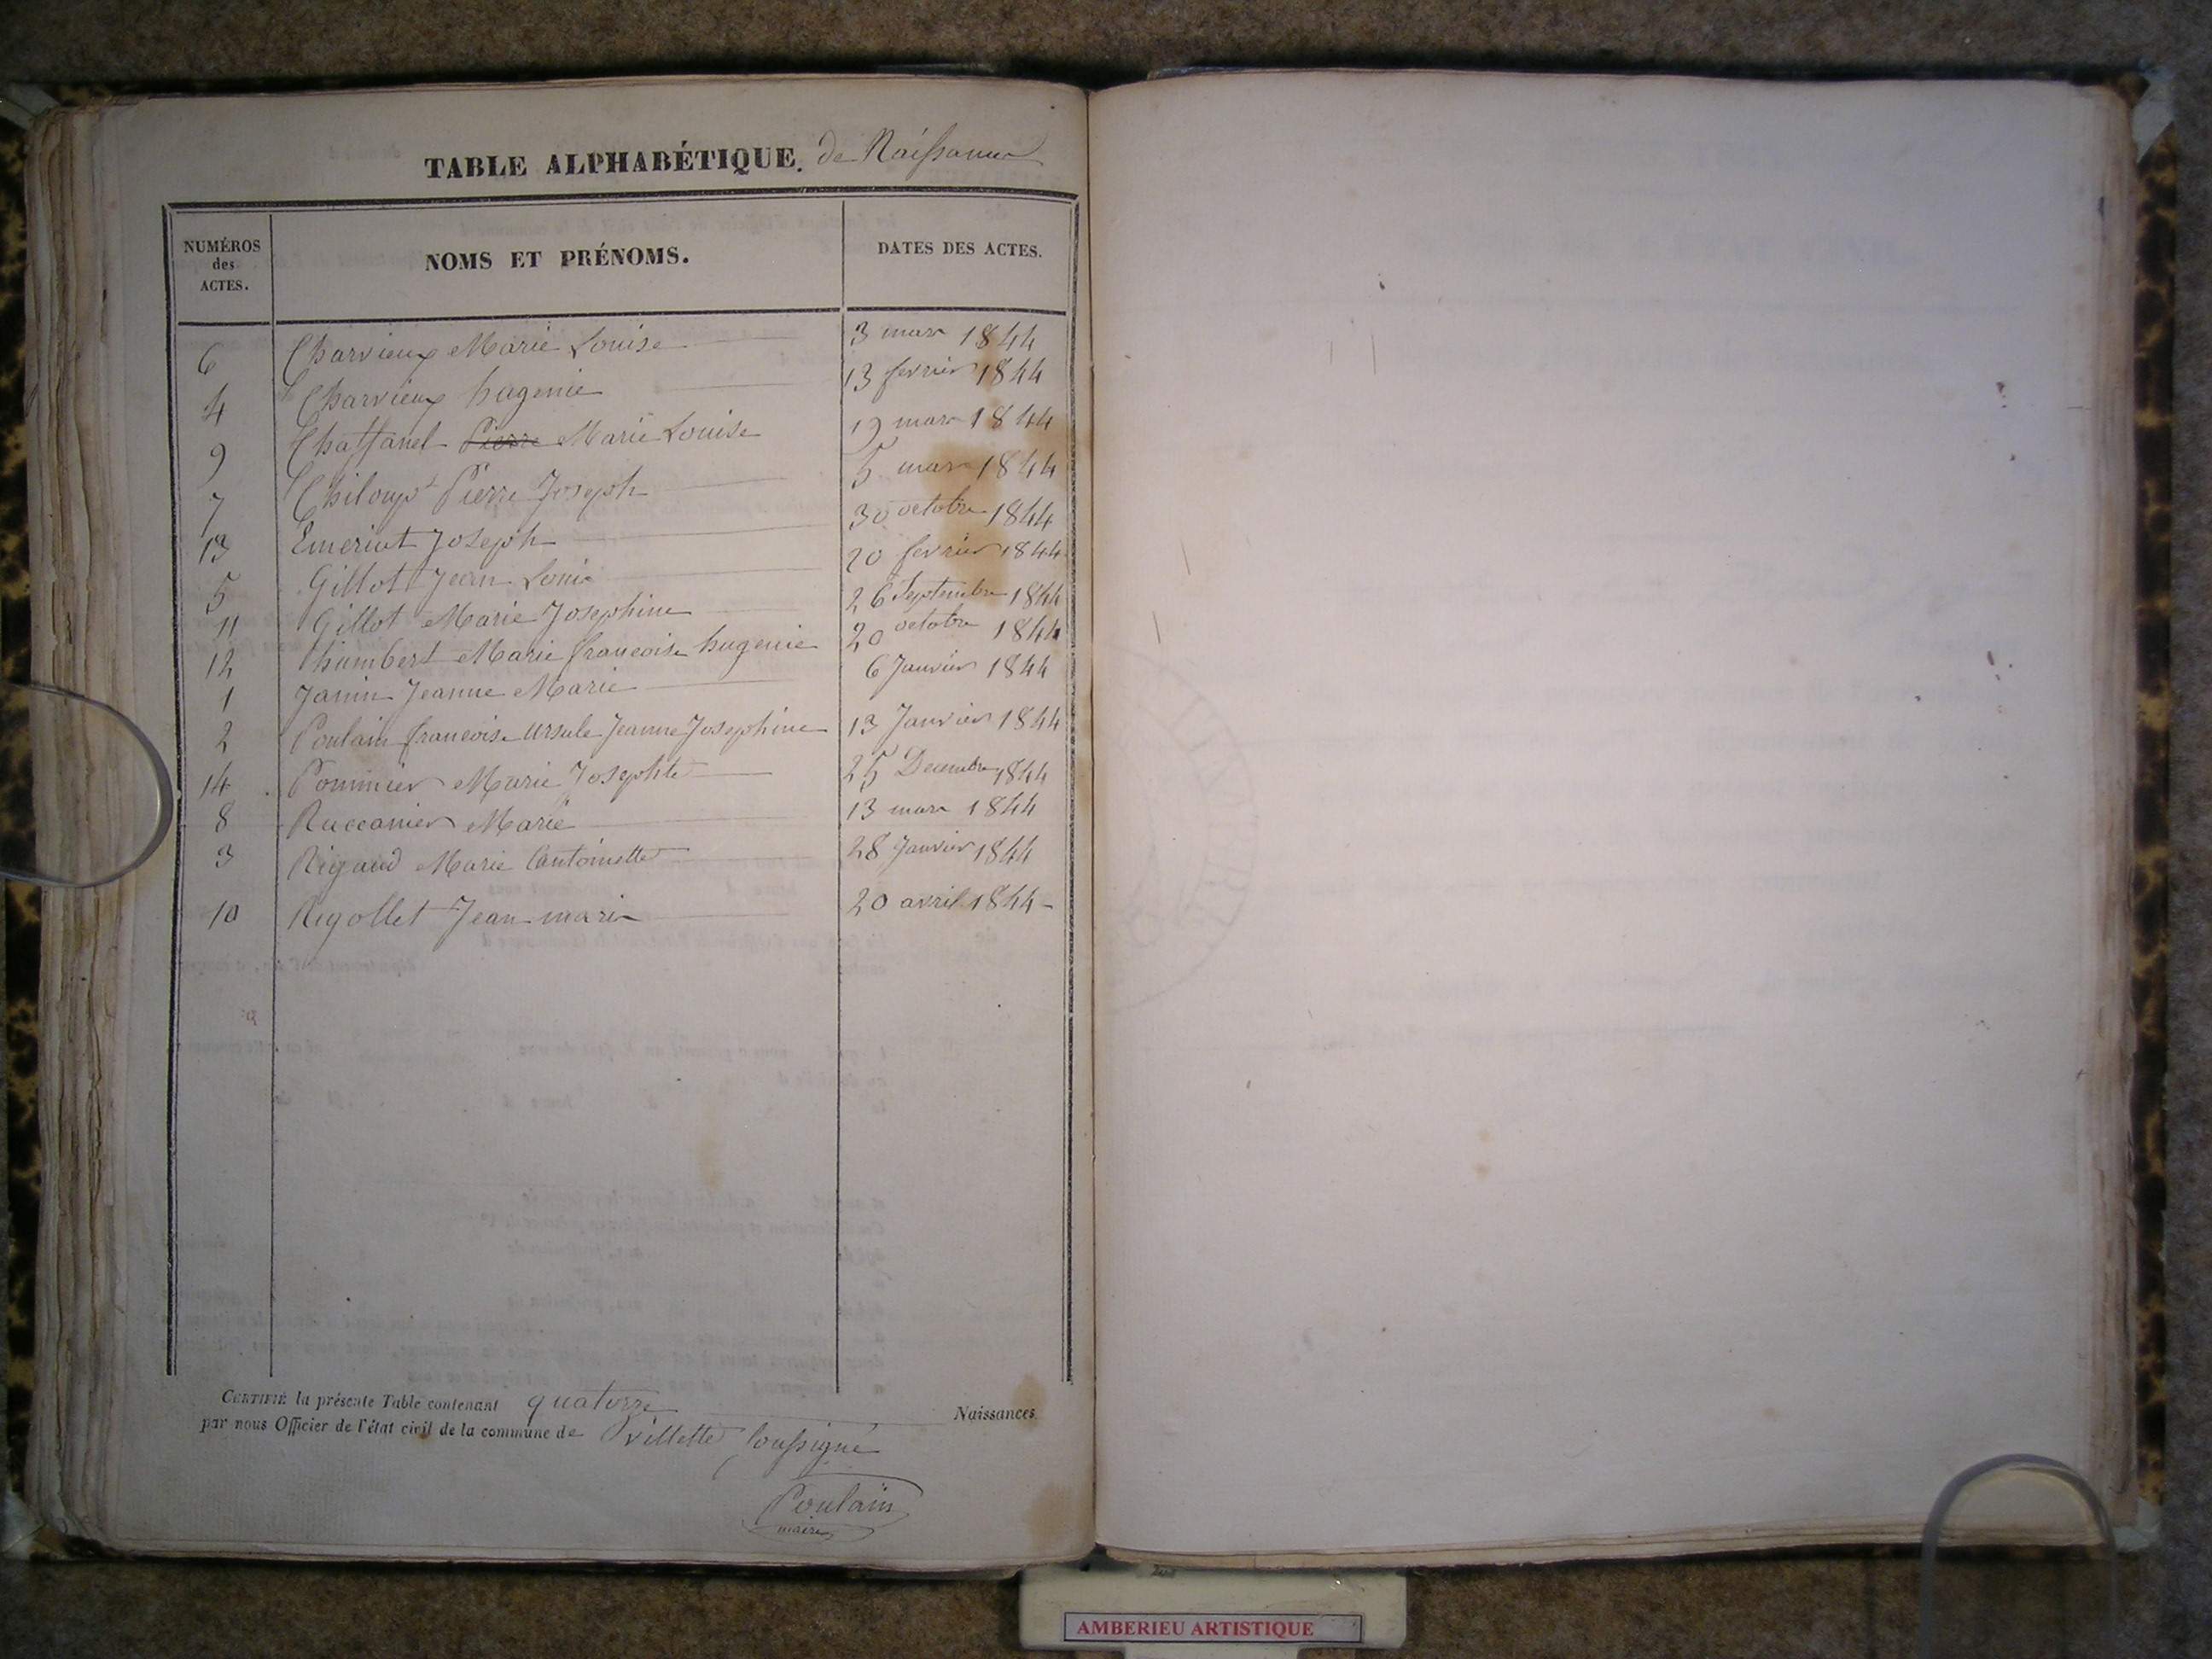 TABLE ALPHABÉTIQUE. de Naissance
NUMÉROS des ACTES. NOMS ET PRÉNOMS. DATES DES ACTES.
6 Charvieux Marie Louise 3 mars 1844
4 Charvieux hugenie 13 fevrier 1844
9 Chatfanel Pierre Marie Louise 19 mars 1844
7 Chiloup Pierre Joseph 5 mars 1844
13 Emeriat Joseph 30 octobre 1844
5 Gillot Jean Louis 20 fevrier 1844
11 Gillot Marie Josephine 26 Septembre 1844
12 humbert Marie francoise hugenie 20 octobre 1844
1 Janin Jeanne Marie 6 Janvier 1844
2 Poulain francoise ursule Jeanne Josephine 13 Janvier 1844
14 Pommier Marie Josephte 25 Decembre 1844
8 Raccanier Marie 13 mars 1844
3 Rigaud Marie Antoinette 28 Janvier 1844
10 Rigollet Jean marie 20 avril 1844
CERTIFIÉ la présente Table contenant quatorze Naissances
par nous Officier de l'état civil de la commune de villette soussigné
Poulain
maire
AMBERIEU ARTISTIQUE